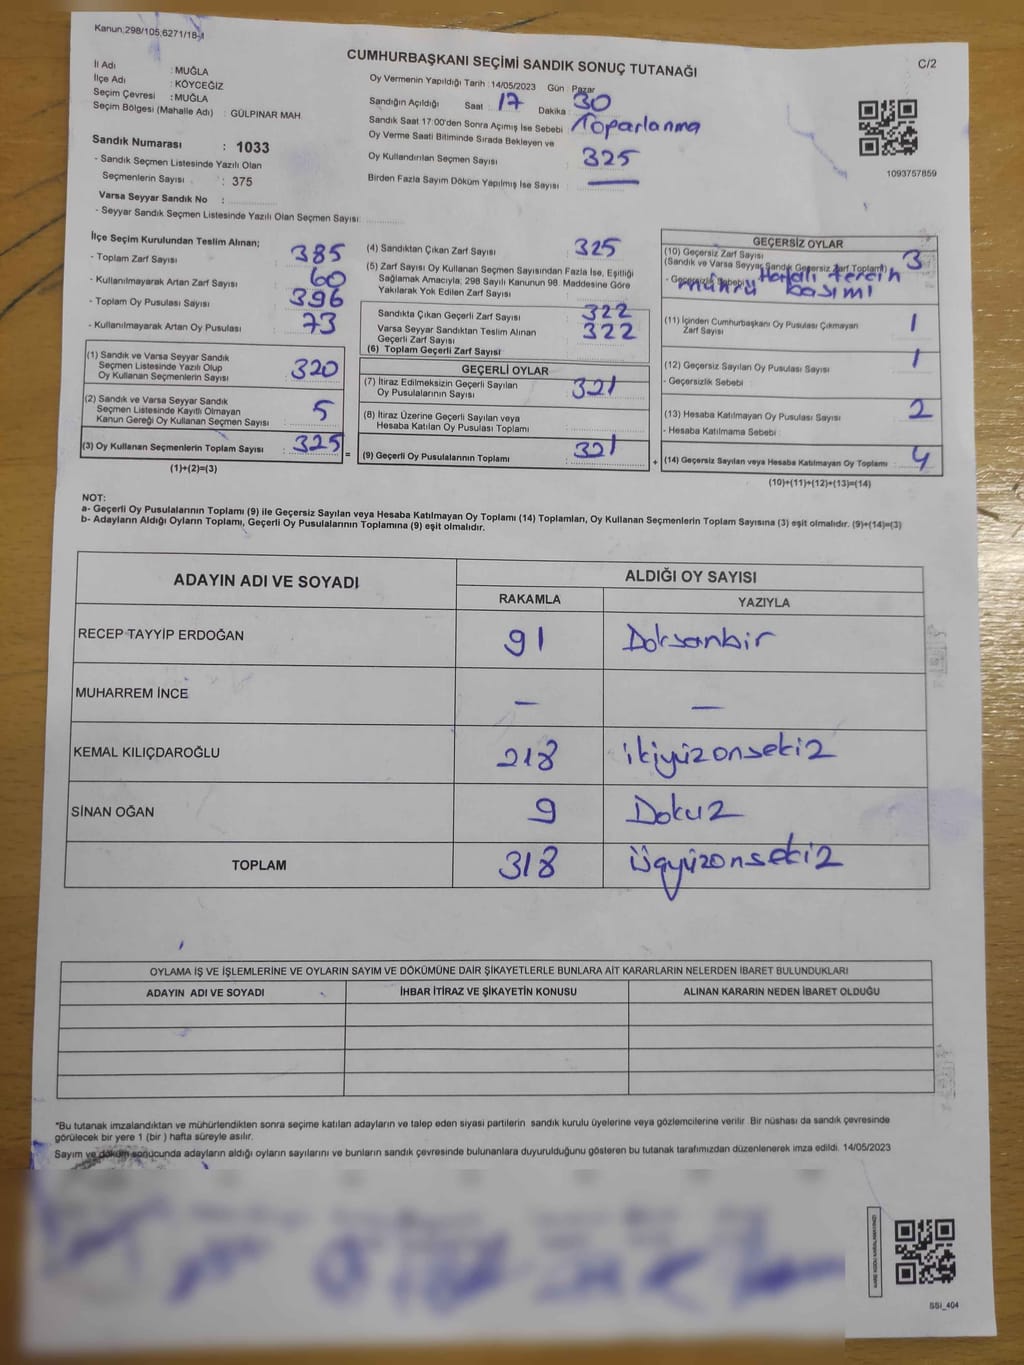 Kanun,298/105,6271/18-4
CUMHURBAŞKANI SEÇİMİ SANDIK SONUÇ TUTANAĞI
C/2
İl Adı : MUĞLA
İlçe Adı : KÖYCEĞİZ
Seçim Çevresi : MUĞLA
Seçim Bölgesi (Mahalle Adı) : GÜLPINAR MAH.
Sandık Numarası : 1033
- Sandık Seçmen Listesinde Yazılı Olan
Seçmenlerin Sayısı : 375
Varsa Seyyar Sandık No :
- Seyyar Sandık Seçmen Listesinde Yazılı Olan Seçmen Sayısı:
Oy Vermenin Yapıldığı Tarih : 14/05/2023 Gün : Pazar
Sandığın Açıldığı Saat : 17 Dakika : 30
Sandık Saat 17:00'den Sonra Açımış İse Sebebi Toparlanma
Oy Verme Saati Bitiminde Sırada Bekleyen ve
Oy Kullandırılan Seçmen Sayısı : 325
Birden Fazla Sayım Döküm Yapılmış İse Sayısı : —
1093757859
İlçe Seçim Kurulundan Teslim Alınan;
- Toplam Zarf Sayısı : 385
- Kullanılmayarak Artan Zarf Sayısı : 60
- Toplam Oy Pusulası Sayısı : 396
- Kullanılmayarak Artan Oy Pusulası : 73
(1) Sandık ve Varsa Seyyar Sandık
Seçmen Listesinde Yazılı Olup
Oy Kullanan Seçmenlerin Sayısı : 320
(2) Sandık ve Varsa Seyyar Sandık
Seçmen Listesinde Kayıtlı Olmayan
Kanun Gereği Oy Kullanan Seçmen Sayısı : 5
(3) Oy Kullanan Seçmenlerin Toplam Sayısı : 325 =
(1)+(2)=(3)
(4) Sandıktan Çıkan Zarf Sayısı : 325
(5) Zarf Sayısı Oy Kullanan Seçmen Sayısından Fazla İse, Eşitliği
Sağlamak Amacıyla, 298 Sayılı Kanunun 98. Maddesine Göre
Yakılarak Yok Edilen Zarf Sayısı :
Sandıkta Çıkan Geçerli Zarf Sayısı : 322
Varsa Seyyar Sandıktan Teslim Alınan
Geçerli Zarf Sayısı : 322
(6) Toplam Geçerli Zarf Sayısı
GEÇERLİ OYLAR
(7) İtiraz Edilmeksizin Geçerli Sayılan
Oy Pusulalarının Sayısı : 321
(8) İtiraz Üzerine Geçerli Sayılan veya
Hesaba Katılan Oy Pusulası Toplamı :
(9) Geçerli Oy Pusulalarının Toplamı : 321 +
GEÇERSİZ OYLAR
(10) Geçersiz Zarf Sayısı 3
(Sandık ve Varsa Seyyar Sandık Geçersiz Zarf Toplamı)
- Geçersizlik Sebebi : Hatalı tercih
mührü basımı
(11) İçinden Cumhurbaşkanı Oy Pusulası Çıkmayan
Zarf Sayısı : 1
(12) Geçersiz Sayılan Oy Pusulası Sayısı : 1
- Geçersizlik Sebebi :
(13) Hesaba Katılmayan Oy Pusulası Sayısı : 2
- Hesaba Katılmama Sebebi :
(14) Geçersiz Sayılan veya Hesaba Katılmayan Oy Toplamı : 4
(10)+(11)+(12)+(13)=(14)
NOT:
a- Geçerli Oy Pusulalarının Toplamı (9) ile Geçersiz Sayılan veya Hesaba Katılmayan Oy Toplamı (14) Toplamları, Oy Kullanan Seçmenlerin Toplam Sayısına (3) eşit olmalıdır. (9)+(14)=(3)
b- Adayların Aldığı Oyların Toplamı, Geçerli Oy Pusulalarının Toplamına (9) eşit olmalıdır.
ADAYIN ADI VE SOYADI
ALDIĞI OY SAYISI
RAKAMLA YAZIYLA
RECEP TAYYİP ERDOĞAN 91 Doksanbir
MUHARREM İNCE — —
KEMAL KILIÇDAROĞLU 218 ikiyüzonsekiz
SİNAN OĞAN 9 Dokuz
TOPLAM 318 Üçyüzonsekiz
OYLAMA İŞ VE İŞLEMLERİNE VE OYLARIN SAYIM VE DÖKÜMÜNE DAİR ŞİKAYETLERLE BUNLARA AİT KARARLARIN NELERDEN İBARET BULUNDUKLARI
ADAYIN ADI VE SOYADI İHBAR İTİRAZ VE ŞİKAYETİN KONUSU ALINAN KARARIN NEDEN İBARET OLDUĞU
*Bu tutanak imzalandıktan ve mühürlendikten sonra seçime katılan adayların ve talep eden siyasi partilerin sandık kurulu üyelerine veya gözlemcilerine verilir. Bir nüshası da sandık çevresinde
görülecek bir yere 1 (bir ) hafta süreyle asılır.
Sayım ve döküm sonucunda adayların aldığı oyların sayılarını ve bunların sandık çevresinde bulunanlara duyurulduğunu gösteren bu tutanak tarafımızdan düzenlenerek imza edildi. 14/05/2023
SSI_404